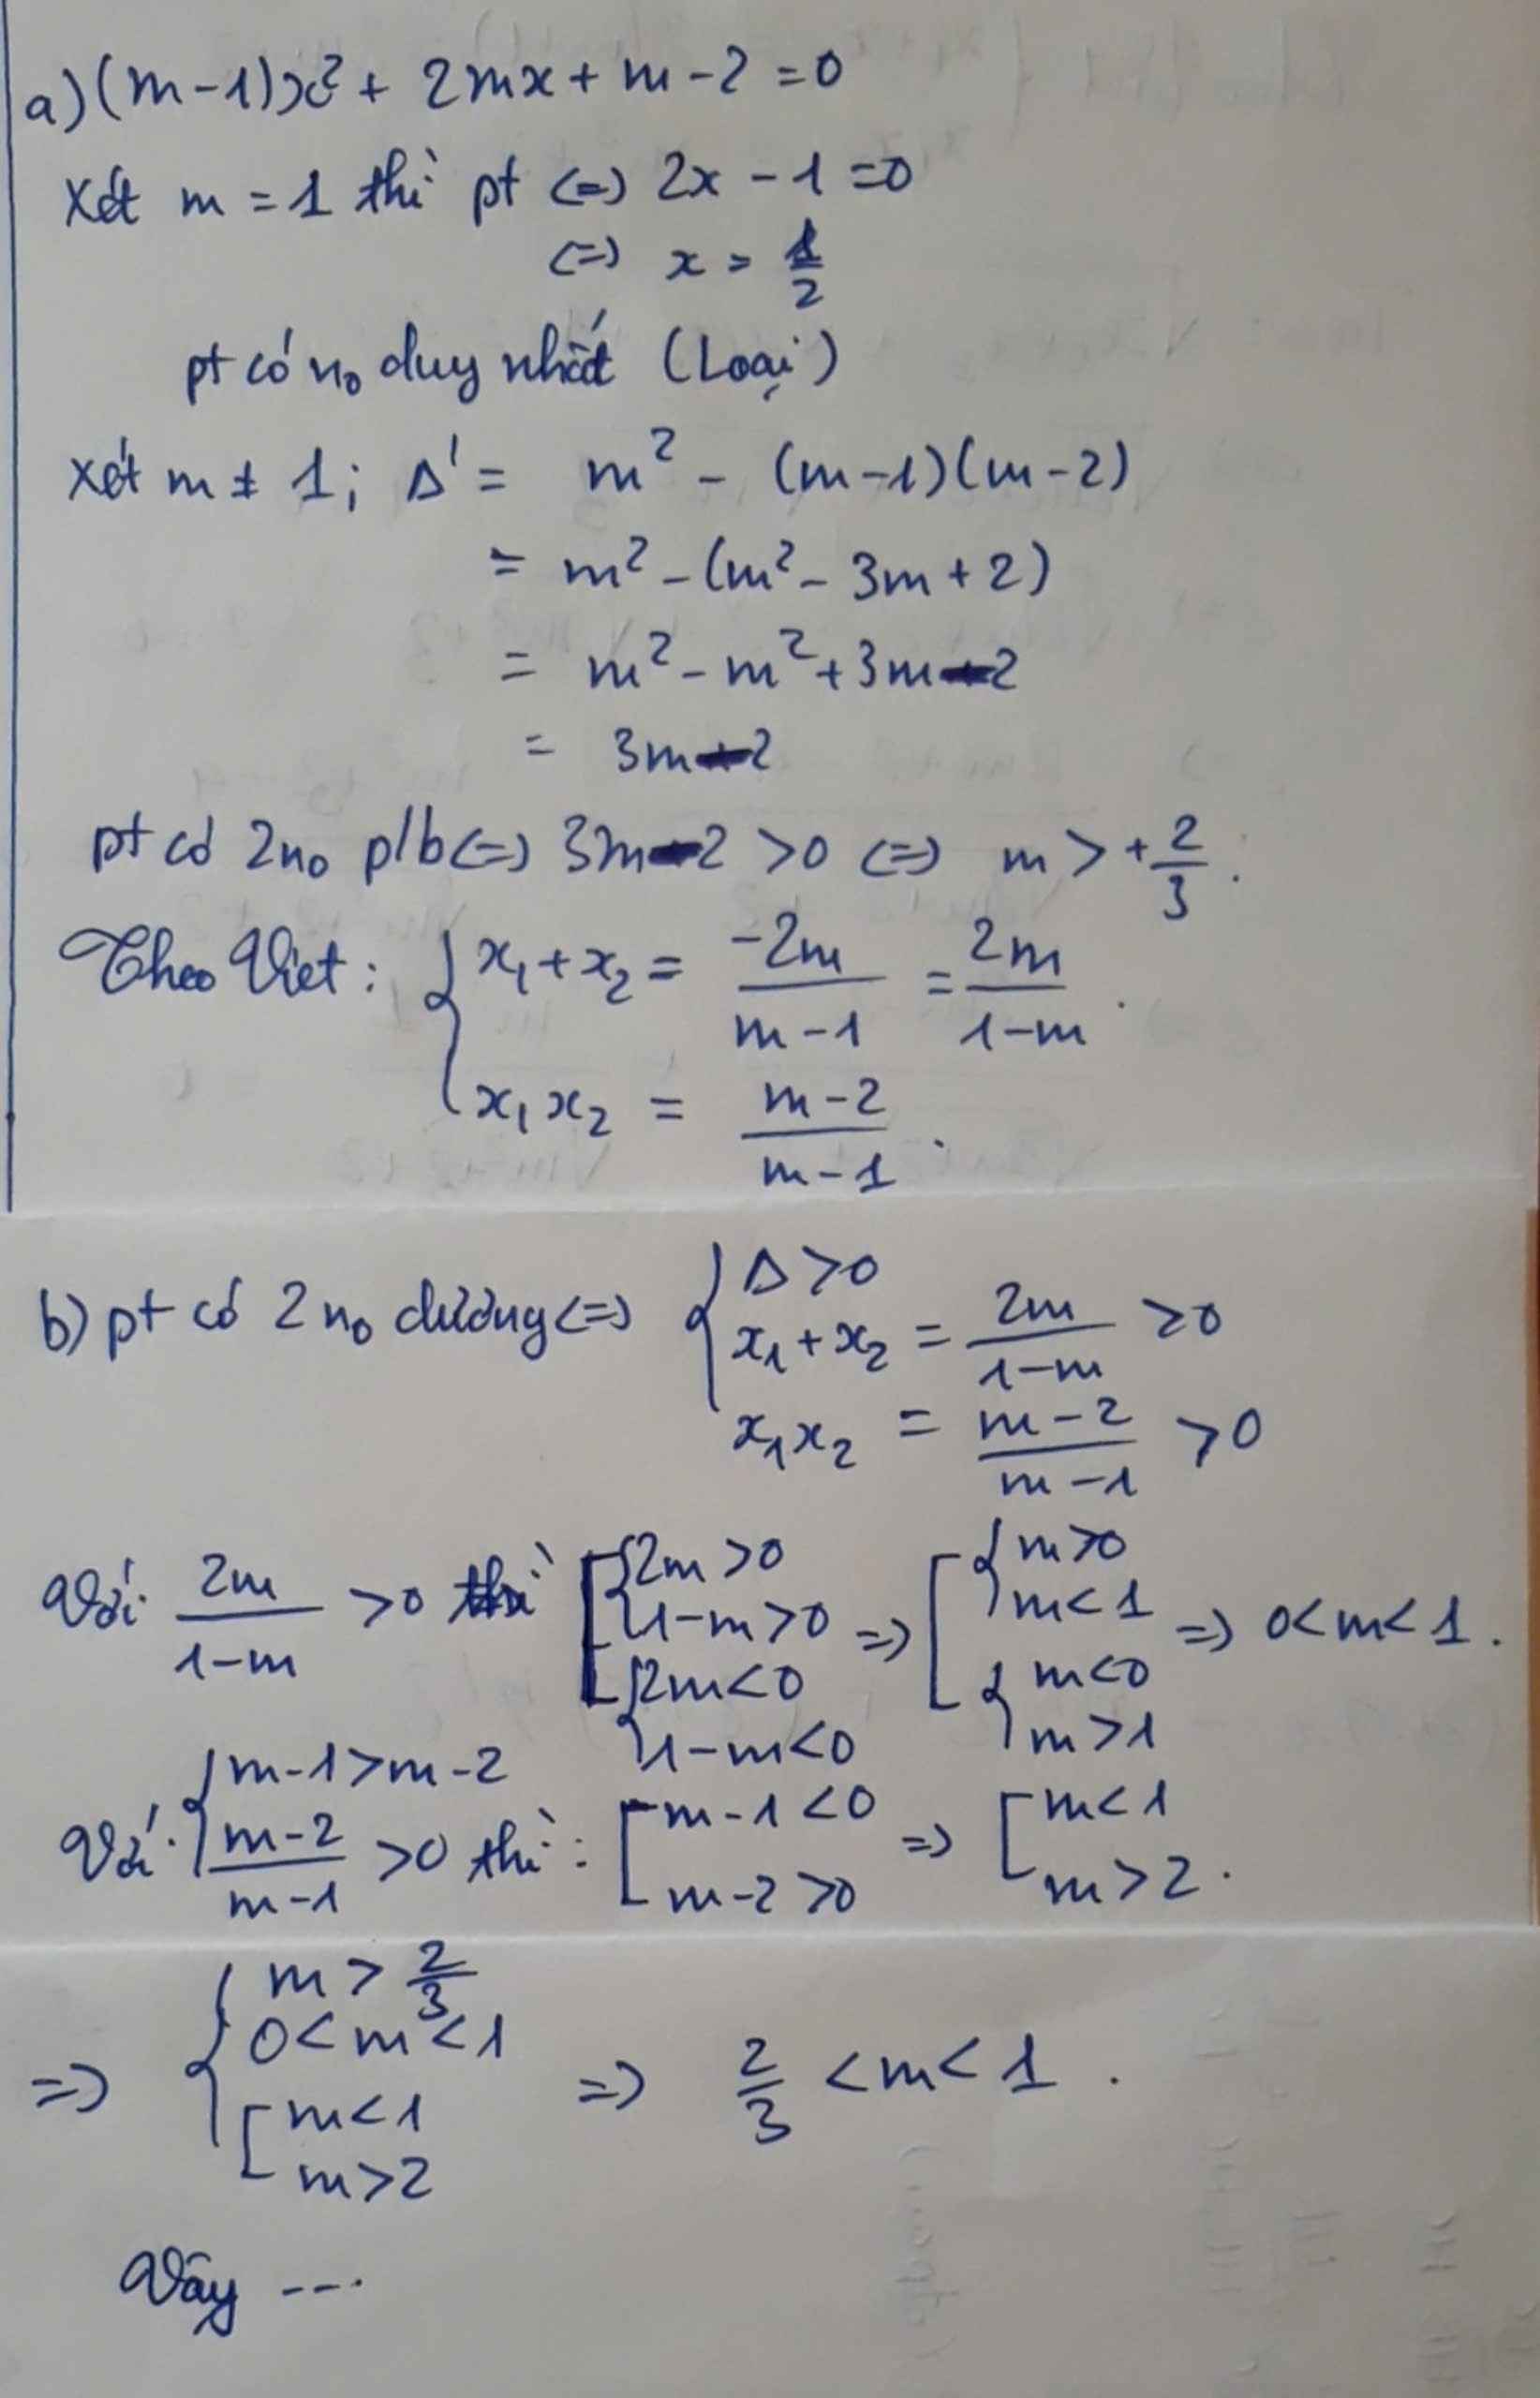 a) (m-1)x² + 2mx + m - 2 = 0
Xét m = 1 thì pt <=> 2x - 1 = 0
<=> x = 1/2
pt có n₀ duy nhất (Loại)
Xét m ≠ 1; Δ' = m² - (m-1)(m-2)
= m² - (m² - 3m + 2)
= m² - m² + 3m - 2
= 3m - 2
pt có 2n₀ p/b <=> 3m - 2 > 0 <=> m > + 2/3.
Theo Viet: { x₁ + x₂ = -2m/(m-1) = 2m/(1-m).
x₁x₂ = (m-2)/(m-1).
b) pt có 2 n₀ dương <=> { Δ > 0
x₁ + x₂ = 2m/(1-m) > 0
x₁x₂ = (m-2)/(m-1) > 0
Với 2m/(1-m) > 0 thì [ { 2m > 0 1-m > 0 { 2m < 0 1-m < 0 => [ { m > 0 m < 1 { m < 0 m > 1 => 0 < m < 1.
Với { m-1 > m-2 (m-2)/(m-1) > 0 thì: [ m-1 < 0 m-2 > 0 => [ m < 1 m > 2.
=> { m > 2/3 0 < m < 1 [ m < 1 m > 2 => 2/3 < m < 1.
Vậy ---.